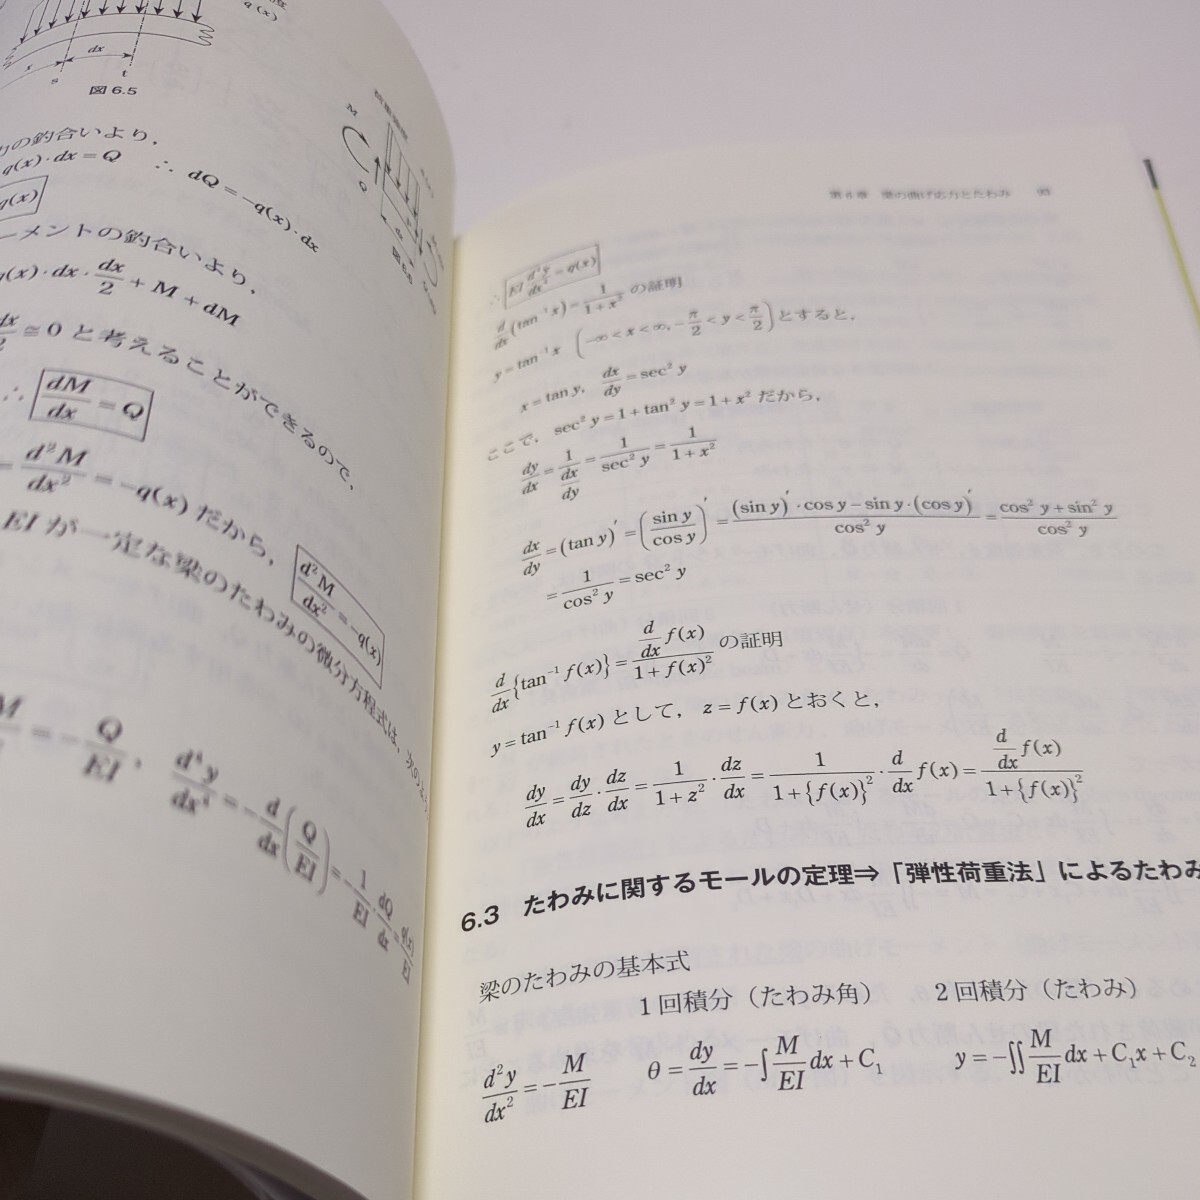 q(x)
dx
x
s
t
図 6.5
M
Q
の釣合いより，
q(x)·dx=Q ∴ dQ=-q(x)·dx
q(x)
ーメントの釣合いより，
q(x)·dx·dx/2+M+dM
dx/2≅0 と考えることができるので，
∴ dM/dx=Q
=d²M/dx²=-q(x) だから， d²M/dx²=-q(x)
EI が一定な梁のたわみの微分方程式は，次のよう
=-Q/EI， d⁴y/dx⁴=-d/dx(Q/EI)=-1/EI·dQ/dx=q(x)/EI
第6章 梁の曲げ応力とたわみ 93
∴ EI d⁴y/dx⁴=q(x)
d/dx(tan⁻¹x)=1/(1+x²) の証明
y=tan⁻¹x (-∞<x<∞, -π/2<y<π/2) とすると，
x=tan y, dx/dy=sec² y
ここで， sec² y=1+tan² y=1+x² だから，
dy/dx=1/(dx/dy)=1/sec² y=1/(1+x²)
dx/dy=(tan y)′=(sin y/cos y)′=((sin y)′·cos y-sin y·(cos y)′)/cos² y=(cos² y+sin² y)/cos² y
=1/cos² y=sec² y
d/dx{tan⁻¹ f(x)}=(d/dx f(x))/(1+f(x)²) の証明
y=tan⁻¹ f(x) として， z=f(x) とおくと，
dy/dx=dy/dz·dz/dx=1/(1+z²)·dz/dx=1/(1+{f(x)}²)·d/dx f(x)=(d/dx f(x))/(1+{f(x)}²)
6.3 たわみに関するモールの定理⇒「弾性荷重法」によるたわみ
梁のたわみの基本式
1回積分（たわみ角） 2回積分（たわみ）
d²y/dx²=-M/EI θ=dy/dx=-∫M/EI dx+C₁ y=-∬M/EI dx+C₁x+C₂